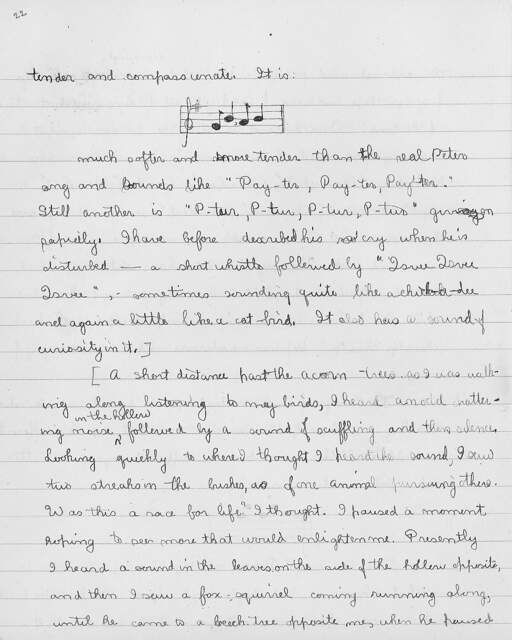 22
tender and compassionate. It is:
much softer and more tender than the real Peter
song and sounds like "Pay-ter, Pay-ter, Pay-ter."
Still another is "P-tur, P-tur, P-tur, P-tur" given
rapidly. I have before described his cry when he is
disturbed — a short whistle followed by "Dsvee Dsvee
Dsvee", - sometimes sounding quite like a chick-a-dee
and again a little like a cat-bird. It also has a sound of
curiosity in it.]
[ A short distance past the acorn-trees as I was walk-
ing along listening to my birds, I heard an odd natter-
in the hollow
ing noise followed by a sound of scuffling and then silence.
Looking quickly to where I thought I heard the sound, I saw
two streaks in the bushes, as of one animal pursuing other.
Was this a race for life" I thought. I paused a moment
hoping to see more that would enlighten me. Presently
I heard a sound in the leaves on the side of the hollow opposite,
and then I saw a fox-squirrel coming running along,
until he came to a beech tree opposite me, when he paused